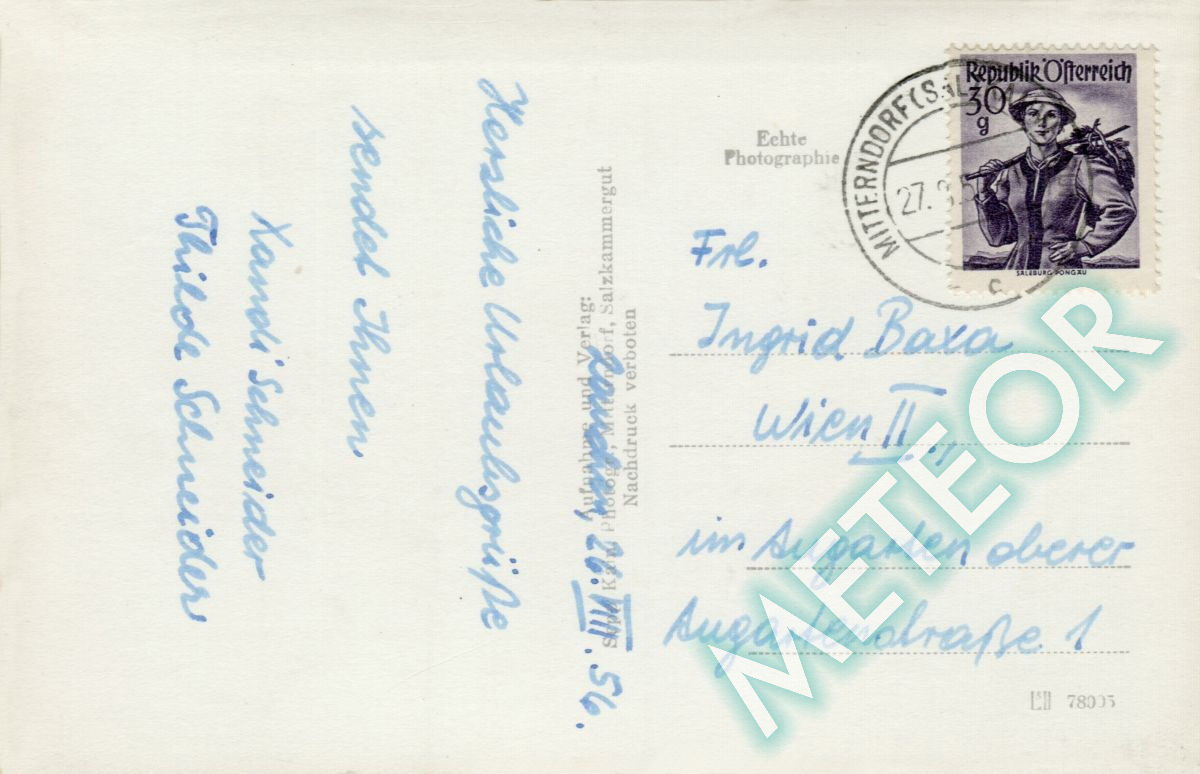 Herzliche Urlaubsgrüße
sendet Ihnen
Xandi Schneider
Thilde Schneider
26. VIII. 56.
Aufnahme und Verlag:
Photogr. Mitterndorf, Salzkammergut
Nachdruck verboten
Echte
Photographie
MITTERNDORF
27. 8.
c
Republik Österreich
30
g
SALZBURG PONGAU
Frl.
Ingrid Baxa
Wien II.,
im Augarten oberer
Augartenstraße 1
METEOR